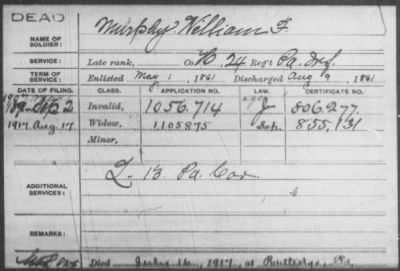 DEAD
NAME OF SOLDIER: Murphy William F.
SERVICE: Late rank, Co. H, 24 Reg't Pa. Inf.
TERM OF SERVICE: Enlisted May 1, 1861 Discharged Aug 9, 1861
DATE OF FILING. CLASS. APPLICATION NO. LAW. CERTIFICATE NO.
2 Invalid, 1056.714 806.277
1917. Aug. 17 Widow, 1105875 855,131
Minor,
ADDITIONAL SERVICES: L. 13. Pa. Cav
REMARKS:
Died July 16, 1917, at Rutledge, Pa.